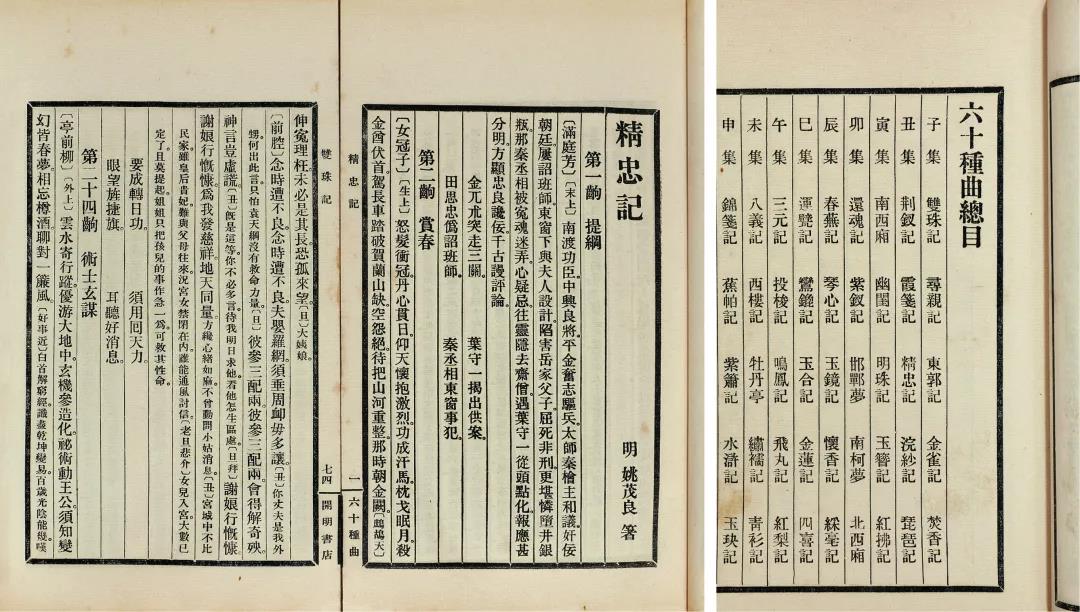 六十種曲總目
子集 雙珠記 尋親記 東郭記 金雀記 焚香記
丑集 荊釵記 霞箋記 精忠記 浣紗記 琵琶記
寅集 南西廂 幽閨記 明珠記 玉簪記 紅拂記
卯集 還魂記 紫釵記 邯鄲夢 南柯夢 北西廂
辰集 春蕪記 琴心記 玉鏡記 懷香記 綵毫記
巳集 運甓記 鸞鎞記 玉合記 金蓮記 四喜記
午集 三元記 投梭記 鳴鳳記 飛丸記 紅梨記
未集 八義記 西樓記 牡丹亭 繡襦記 青衫記
申集 錦箋記 蕉帕記 紫簫記 水滸記 玉玦記
精忠記
明 姚茂良 著
第一齣 提綱
〔滿庭芳〕〔末上〕南渡功臣。中興良將。平金奮志驅兵。太師秦檜主和議。奸佞
朝廷。屢詔班師。東窗下與夫人設計。陷害岳家父子。屈死非刑。更堪憐墮井銀
瓶。那秦丞相被冤魂迷弄。心疑忌往靈隱去齋僧。遇葉守一從頭點化。報應甚
分明。方顯忠良讒佞。千古謾評論。
金兀朮突走三關。 葉守一揭出供案。
田思忠僞詔班師。 秦丞相東窗事犯。
第二齣 賞春
〔女冠子〕〔生上〕怒髮衝冠。丹心貫日。仰天懷抱激烈。功成汗馬。枕戈眠月。殺
金酋伏首。駕長車踏破賀蘭山缺。空怨絕。待把山河重整。那時朝金闕。〔鷓鴣天〕
精忠記 一 六十種曲
雙珠記 七四 開明書店
伸寃理枉。未必是其長。恐孤來望。〔旦〕大姨娘。
〔前腔〕念時遭不良。念時遭不良。夫嬰羅網。須垂周卹毋多讓。〔丑〕你丈夫是我外
甥。何出此言。只怕袁天綱沒有救命力量。〔旦〕彼參三配兩。彼參三配兩。會得解奇殃。
神言豈虛謊。〔丑〕旣是這等。你不必多言。待我明日求他。看他怎生區處。〔旦拜〕謝娘行慨慷。
謝娘行慨慷。爲我發慈祥。地天同量。方纔心緖如麻。不曾動問小姑消息。〔丑〕宮城中不比
民家。雖皇后貴妃。難與父母往來。況宮女禁閉在內。誰能通風討信。〔老旦悲介〕女兒入宮。大數已
定了。且莫提起。姐姐只把孩兒的事作急一爲。可救其性命。
要成轉日功。 須用囘天力。
眼望旌捷旗。 耳聽好消息。
第二十四齣 術士玄謀
〔亭前柳〕〔外上〕雲水寄行蹤。優游大地中。玄機參造化。祕術動王公。須知變
幻皆春夢。相忘樽酒。聊對一簾風。〔好事近〕白首解窮經。識盡乾坤變易。百歲光陰能幾。嘆